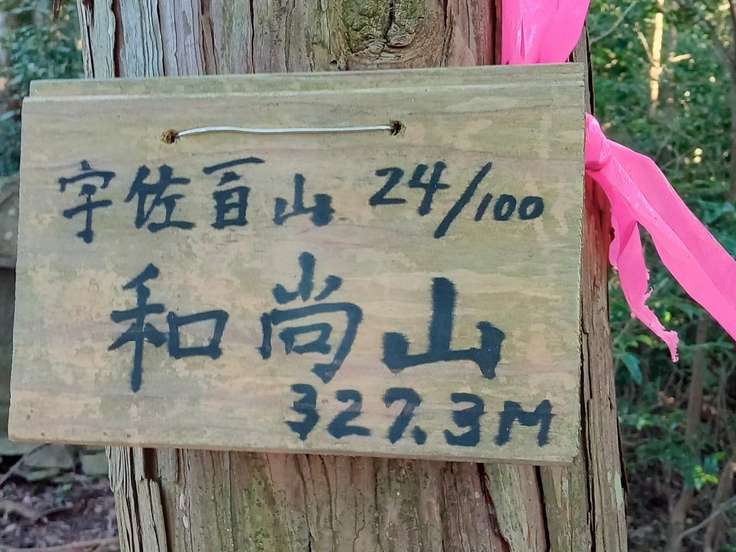 宇佐百山 24/100
和尚山
327.3M